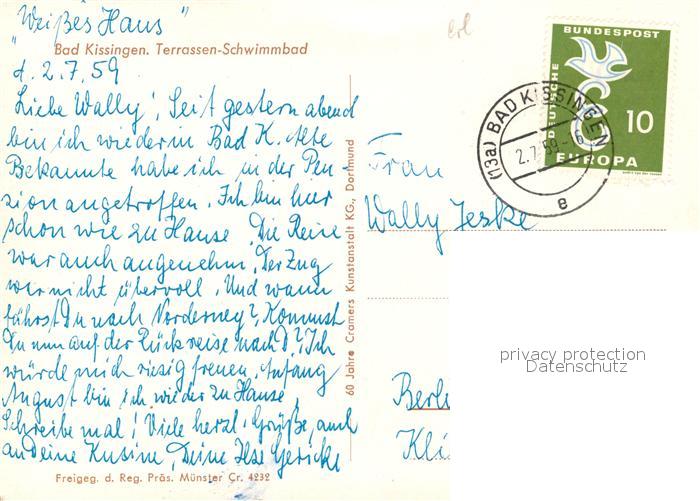 "Weißes Haus"
Bad Kissingen. Terrassen-Schwimmbad
d. 2.7.59
Liebe Wally! Seit gestern abend
bin ich wieder in Bad K. Alte
Bekannte habe ich in der Pen-
sion angetroffen. Ich bin hier
schon wie zu Hause. Die Reise
war auch angenehm. Der Zug
war nicht übervoll. Und wann
fährst Du nach Norderney? Kommst
Du nun auf der Rückreise nach D? Ich
würde mich riesig freuen. Anfang
August bin ich wieder zu Hause.
Schreibe mal! Viele herzl. Grüße, auch
an Deine Kusine, Deine Ilse Gericke
Freigeg. d. Reg. Präs. Münster Cr. 4232
60 Jahre Cramers Kunstanstalt KG, Dortmund
DEUTSCHE BUNDESPOST
10
EUROPA
(13a) BAD KISSINGEN
2.7.59-16
e
Frau
Wally Jeske
privacy protection
Datenschutz
Berl
Kli